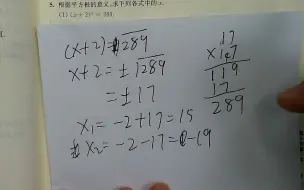 5. 根据平方根的意义,求下列各式中的x.
(1) (x+2)² = 289;
(x+2) = √289
x+2 = ±√289
= ±17
x₁ = -2+17 = 15
x₂ = -2-17 = -19
17
×17
119
17
289